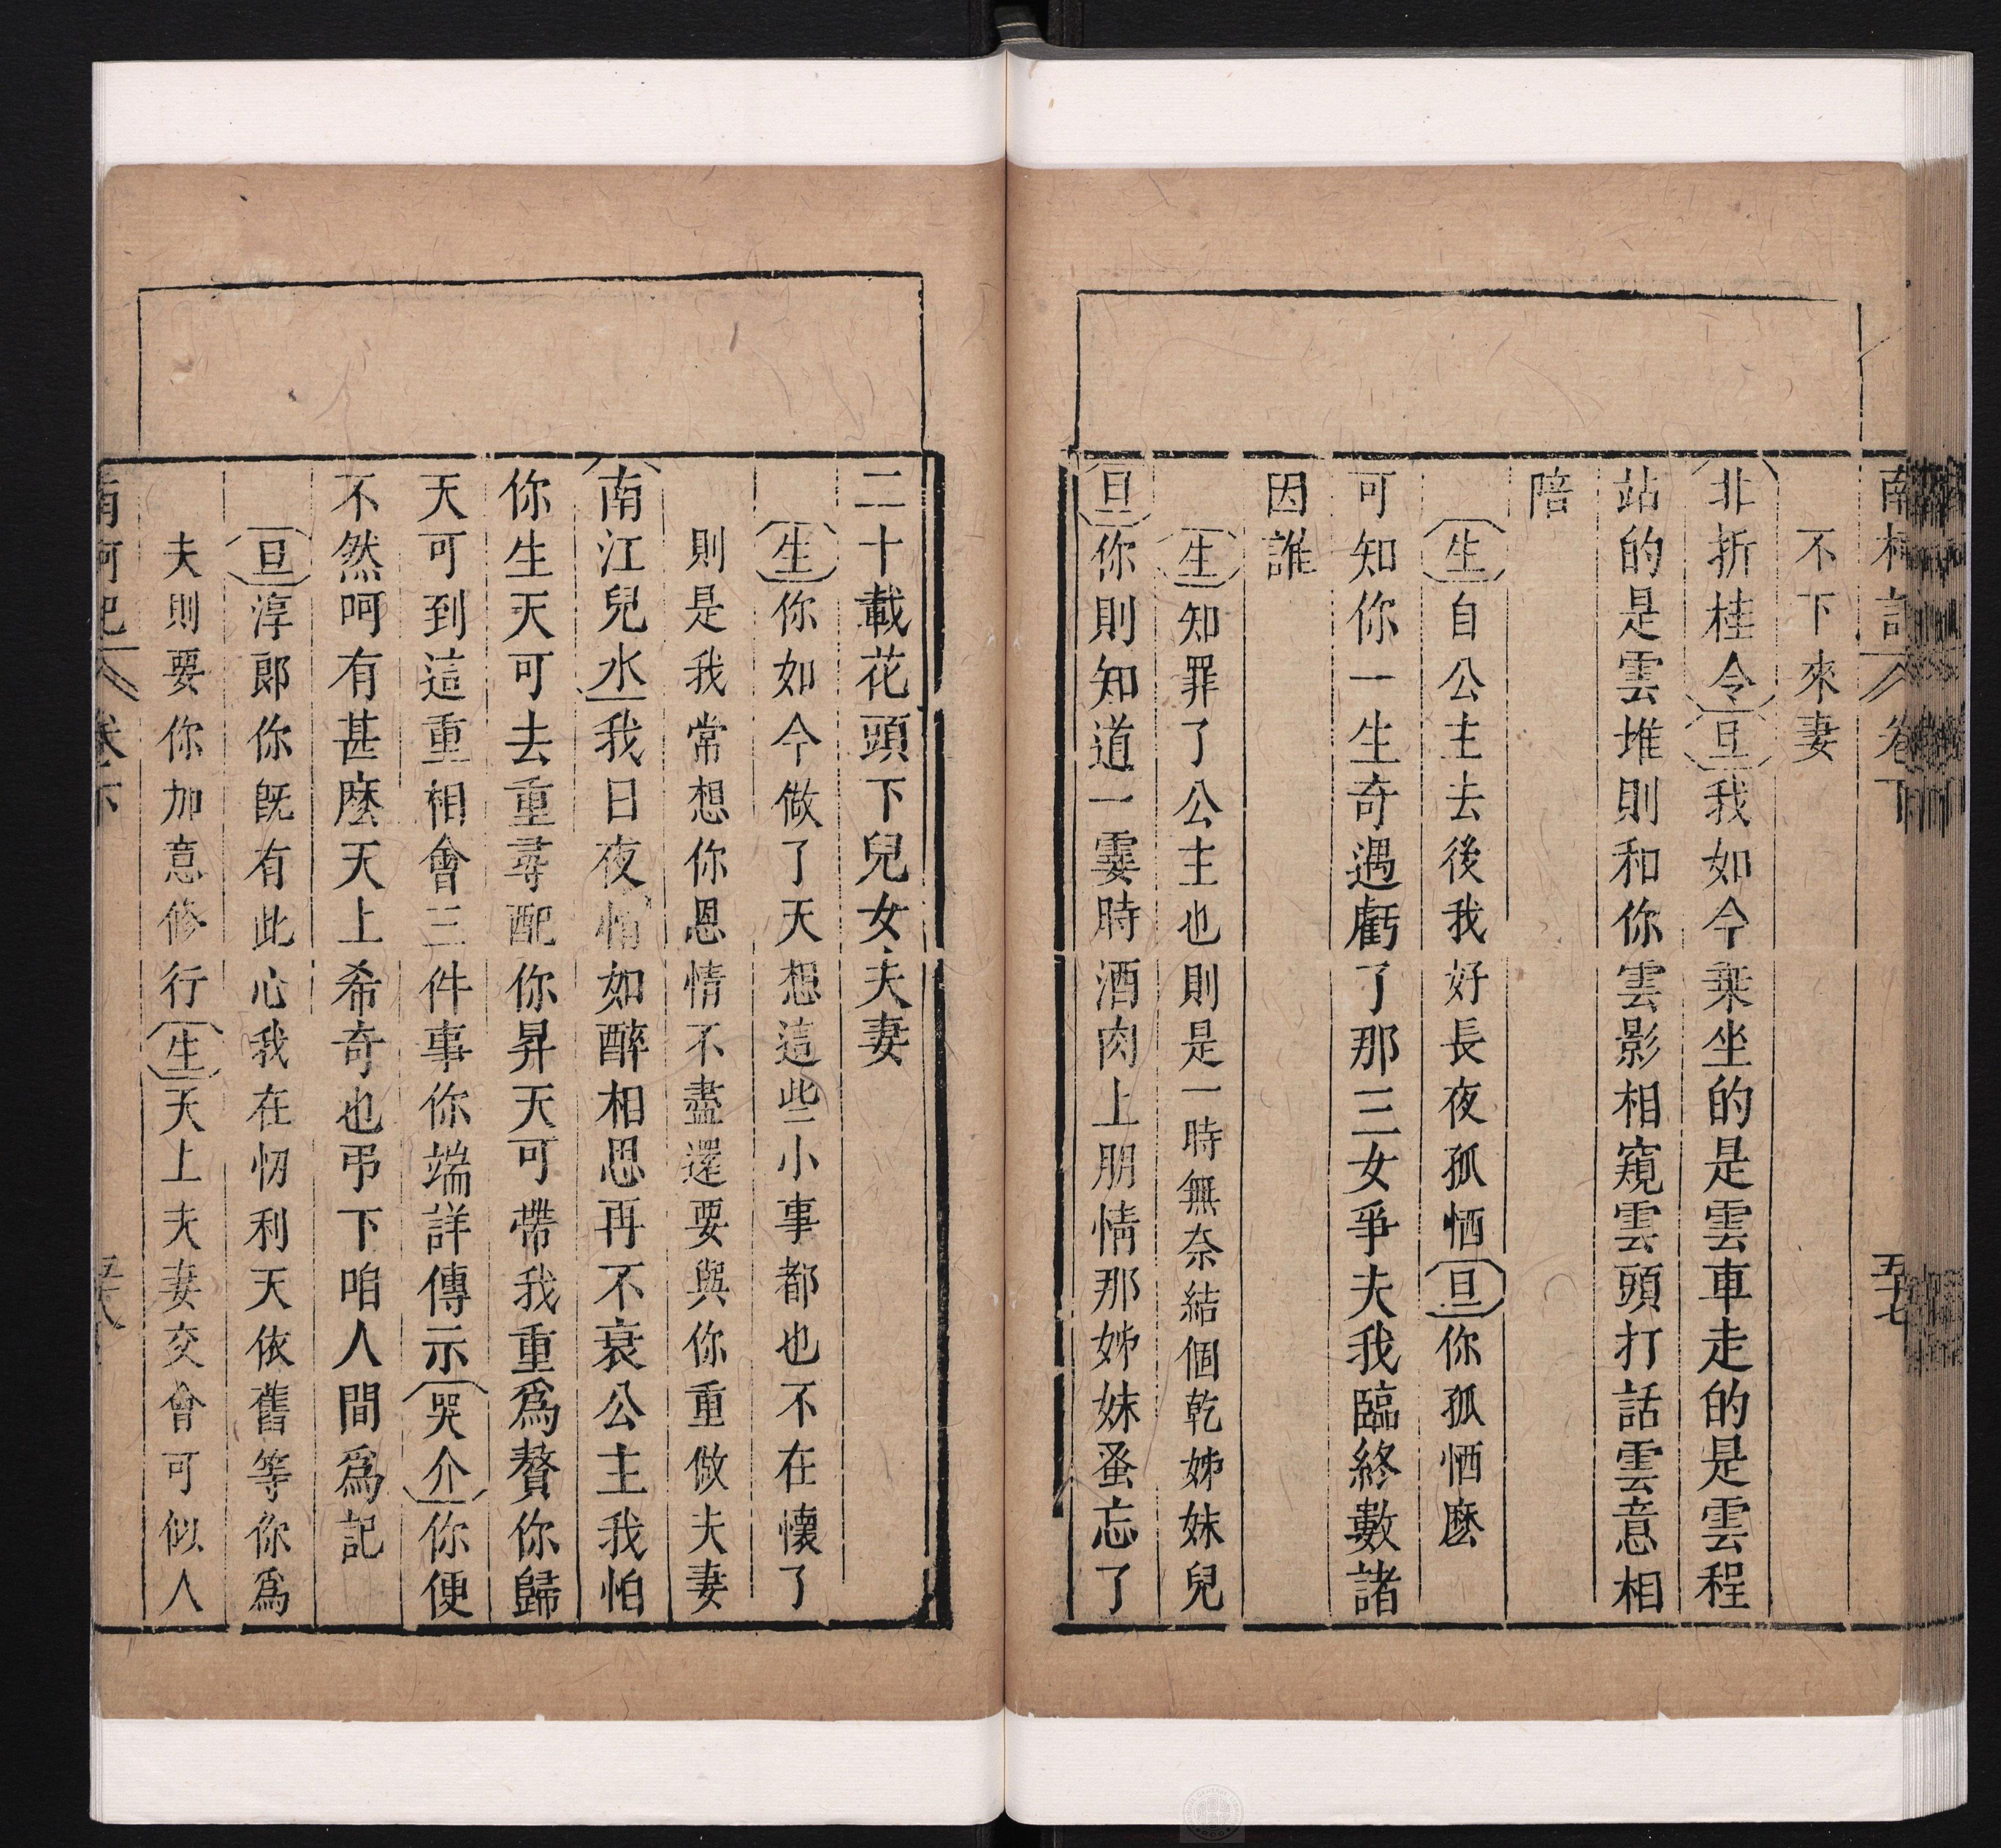 南柯記 卷下 五十七
不下來妻
北折桂令旦我如今乗坐的是雲車走的是雲程
站的是雲堆則和你雲影相窺雲頭打話雲意相
陪
生自公主去後我好長夜孤恓旦你孤恓麽
可知你一生奇遇虧了那三女爭夫我臨終數諸
因誰
生知罪了公主也則是一時無奈結個乾姊妹兒
旦你則知道一霎時酒肉上朋情那姊妹蚤忘了
二十載花頭下兒女夫妻
生你如今做了天想這些小事都也不在懷了
則是我常想你恩情不盡還要與你重做夫妻
南江兒水我日夜情如醉相思再不衰公主我怕
你生天可去重尋配你昇天可帶我重爲贅你歸
天可到這重相會三件事你端詳傳示哭介你便
不然呵有甚麽天上希奇也弔下咱人間爲記
旦淳郎你既有此心我在忉利天依舊等你爲
夫則要你加意修行生天上夫妻交會可似人
南柯記 卷下 五十八